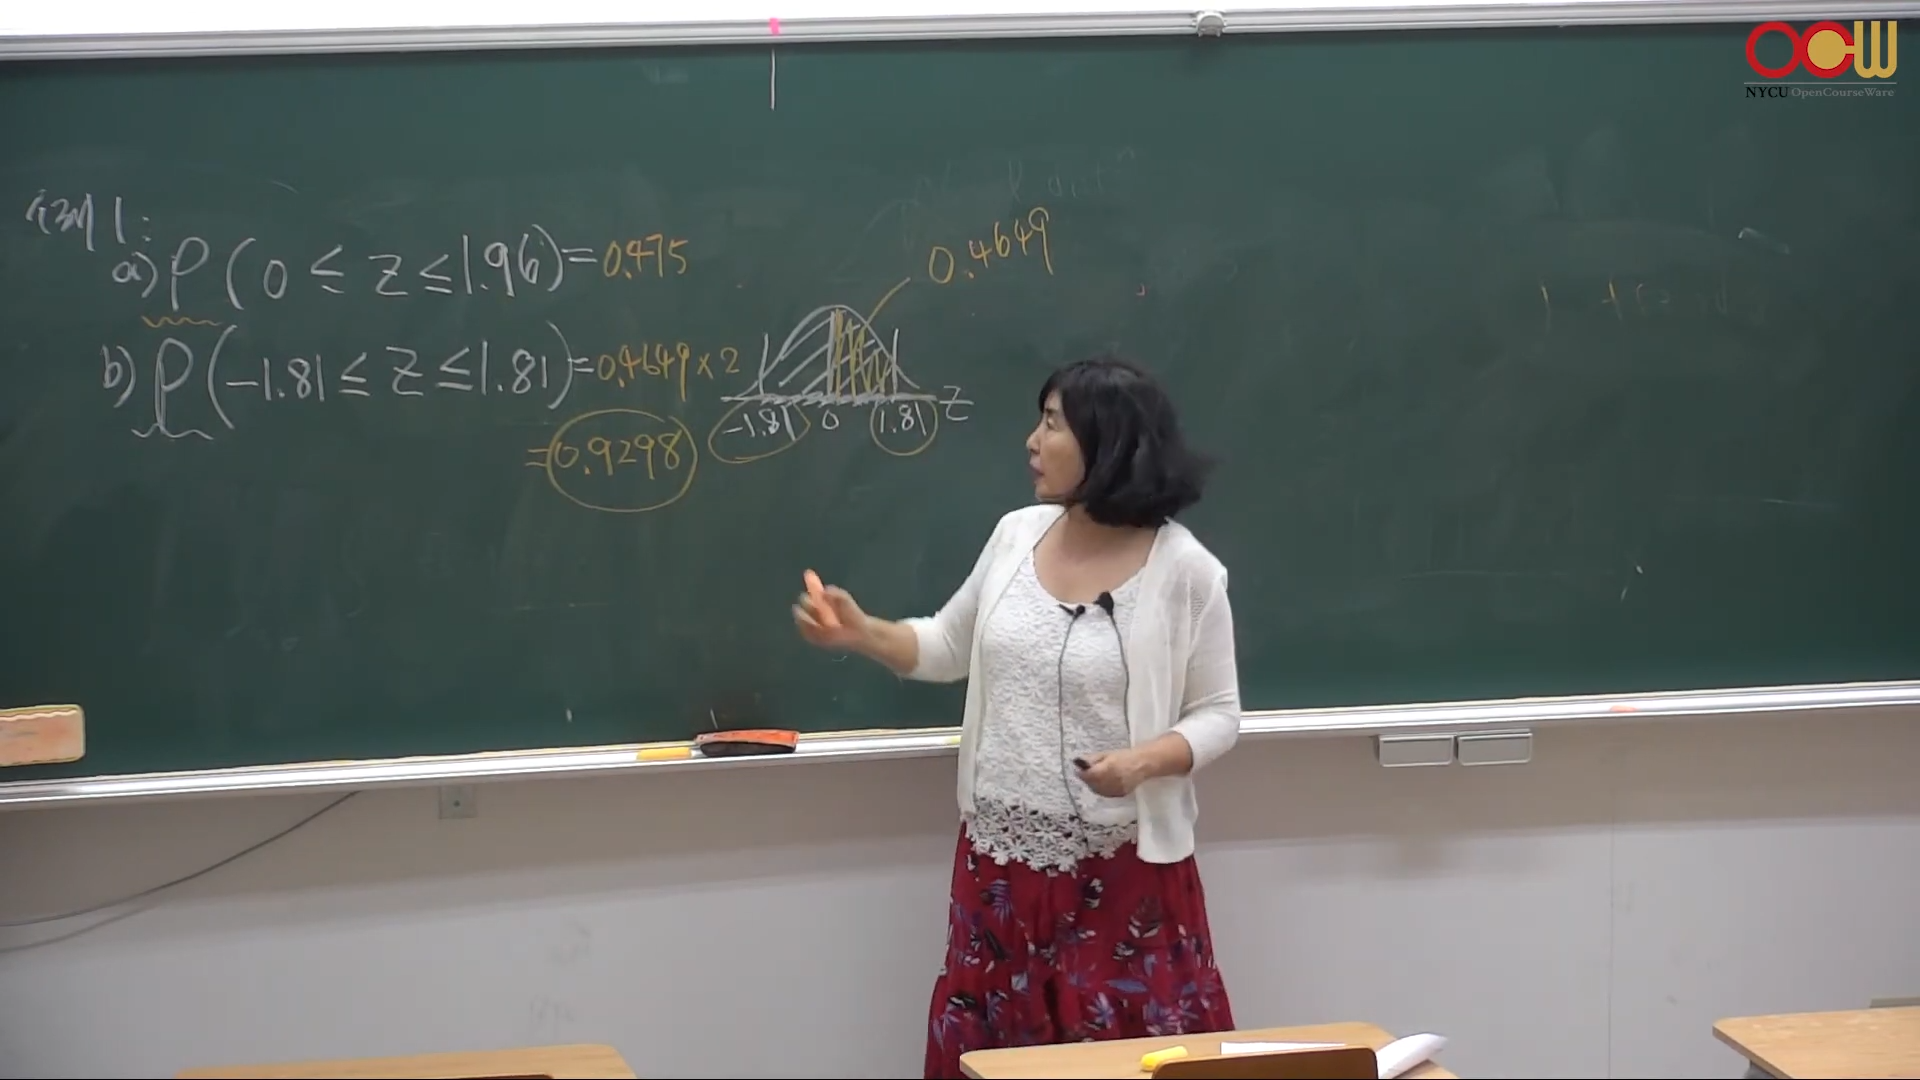 OCW
NYCU OpenCourseWare
例1:
a) P(0 ≤ z ≤ 1.96) = 0.475
b) P(-1.81 ≤ z ≤ 1.81) = 0.4649 × 2
= 0.9298
0.4649
-1.81 0 1.81 z